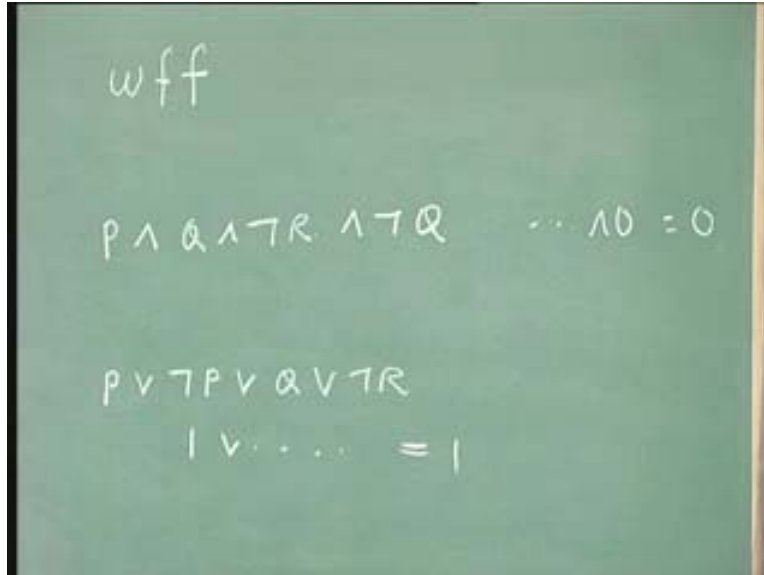 wff
P ∧ Q ∧ ¬R ∧ ¬Q ... ∧ 0 = 0
P ∨ ¬P ∨ Q ∨ ¬R
1 ∨ .... = 1